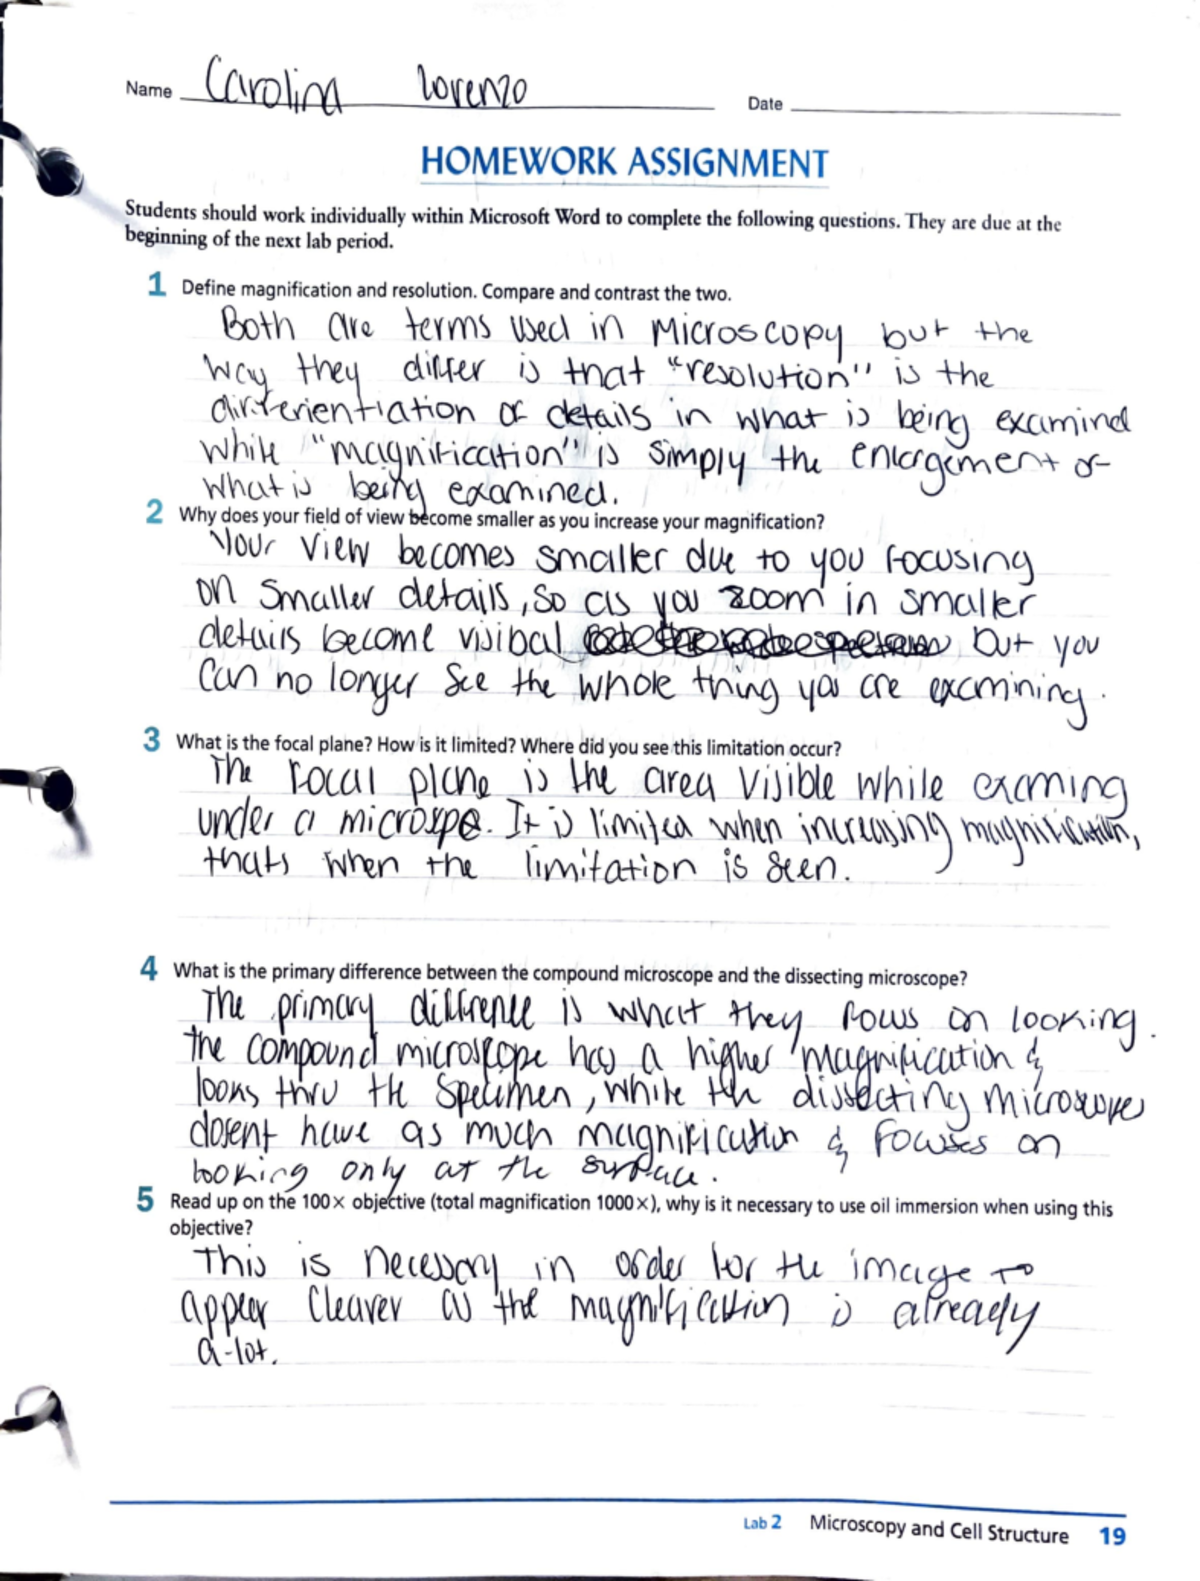 Name Carolina Lorenzo Date
HOMEWORK ASSIGNMENT
Students should work individually within Microsoft Word to complete the following questions. They are due at the
beginning of the next lab period.
1 Define magnification and resolution. Compare and contrast the two.
Both are terms used in Microscopy but the
way they differ is that "resolution" is the
differientiation of details in what is being examind
while "magnification" is simply the enlargement of
what is being examined.
2 Why does your field of view become smaller as you increase your magnification?
Your view becomes smaller due to you focusing
on smaller details, so as you zoom in smaller
details become visibal but you
can no longer see the whole thing you are examining.
3 What is the focal plane? How is it limited? Where did you see this limitation occur?
The focal plane is the area visible while examing
under a microspe. It is limited when increasing magnification,
thats when the limitation is seen.
4 What is the primary difference between the compound microscope and the dissecting microscope?
The primary diffrence is what they fows on looking.
the compound microscope has a higher magnification &
looks thru the specimen, while the dissecting microscope
dosent have as much magnification & focuses on
looking only at the surface.
5 Read up on the 100× objective (total magnification 1000×), why is it necessary to use oil immersion when using this
objective?
This is necessary in order for the image to
appear clearer as the magnification is already
a-lot.
Lab 2 Microscopy and Cell Structure 19